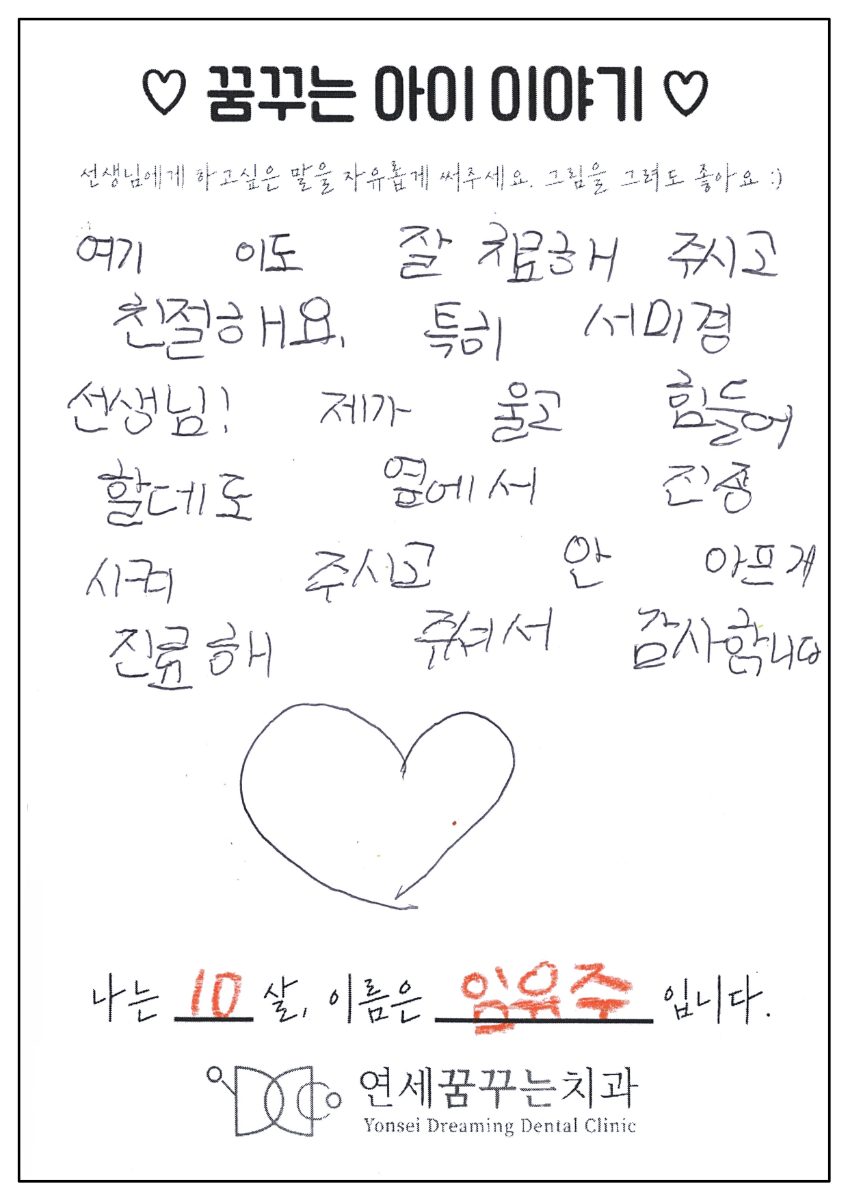 ♡ 꿈꾸는 아이 이야기 ♡
선생님에게 하고싶은 말을 자유롭게 써주세요. 그림을 그려도 좋아요 :)
여기 이도 잘 치료해 주시고
친절해요. 특히 서미경
선생님! 제가 울고 힘들어
할데도 옆에서 진종
시켜 주시고 안 아프게
진료해 주셔서 감사합니다
나는 10 살, 이름은 임유주 입니다.
연세꿈꾸는치과
Yonsei Dreaming Dental Clinic